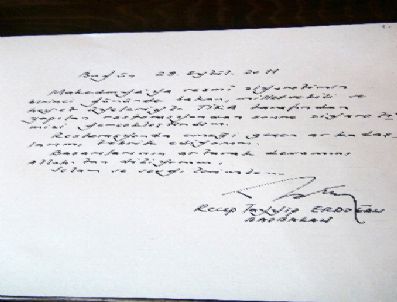 Bugün 29 Eylül 2011
Makedonya'ya resmi ziyaretimin
ikinci gününde bakan, milletvekili ve
heyet üyeleriyle TİKA tarafından
yapılan restorasyondan sonra ziyaretimizi
gerçekleştirdim.
Restorasyonda emeği geçen arkadaşlarımı
tebrik ediyorum.
Başarılarının artarak devamını
Allah'tan diliyorum.
Selam ve sevgi
Recep Tayyip ERDOĞAN
BAŞBAKAN